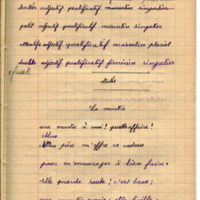 adjectif qualificatif masculin singulier
petit adjectif qualificatif masculin singulier
attentifs adjectif qualificatif masculin pluriel
adjectif qualificatif féminin singulier
La montre
une montre à moi! quelle affaire!
Mon père m'offre ce cadeau
pour m'encourager à bien faire.
Elle marche seule! c'est beau!